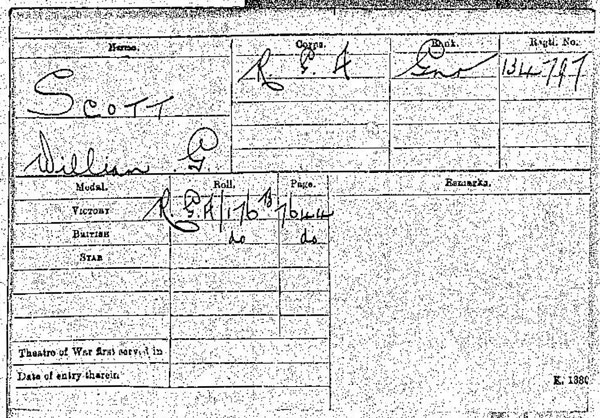 Name. Corps. Rank. Regtl. No.
Scott R. G. A Gnr 134797
William G.
Medal. Roll. Page. Remarks.
Victory R.G.A/176B 7644
British do do
Star
Theatre of War first served in
Date of entry therein
K. 1380